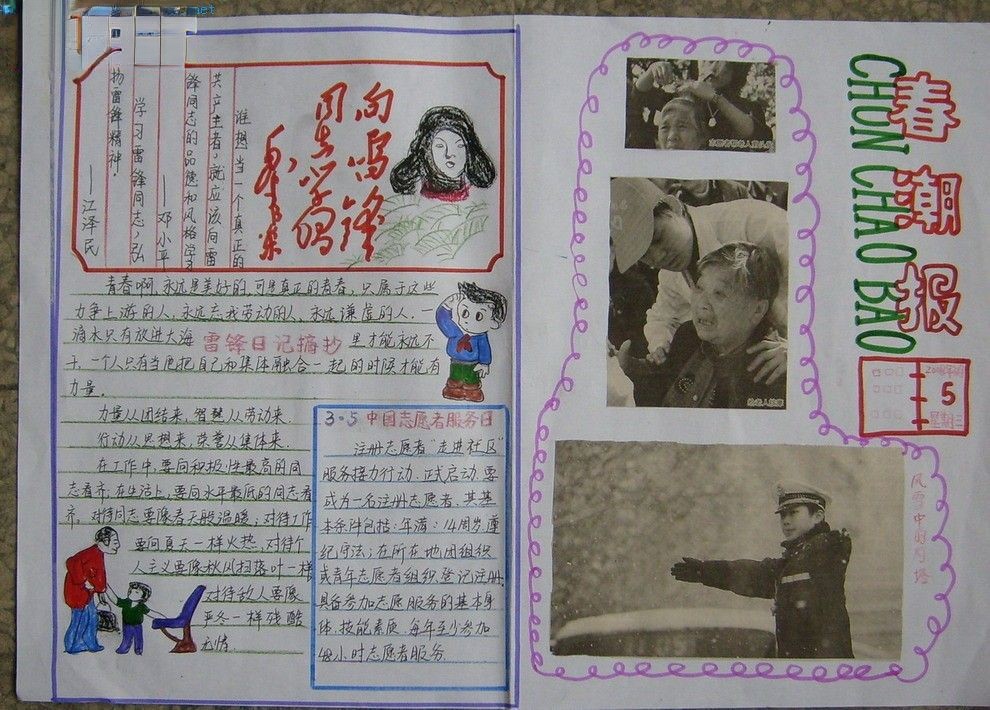 向雷锋
同志学习
毛泽东
谁想当一个真正的
共产主者，就应该向雷
锋同志的品德和风格学习
——邓小平
学习雷锋同志，弘
扬雷锋精神．
——江泽民
青春啊，永远是美好的，可是真正的青春，只属于这些
力争上游的人，永远忘我劳动的人、永远谦虚的人．一
滴水只有放进大海里才能永远不
干，一个人只有当他把自己和集体融合一起的时候才能有
力量．
雷锋日记摘抄
力量从团结来，智慧从劳动来．
行动从思想来，荣誉从集体来．
在工作中，要向积极性最高的同
志看齐，在生活上，要向水平最低的同志看
齐，对待同志要像春天般温暖，对待工作
要向夏天一样火热，对待个
人主义要像秋风扫落叶一样
对待敌人要像
严冬一样残酷
无情
3·5中国志愿者服务日
注册志愿者“走进社区”
服务接力行动．正式启动．要
成为一名注册志愿者，其基
本条件包括：年满：14周岁，遵
纪守法；在所在地团组织
或青年志愿者组织登记注册
具备参加志愿服务的基本身
体、技能素质．每年至少参加
48小时志愿者服务．
春潮报
CHUN CHAO BAO
5
星期三
给老人按摩
风雪中的